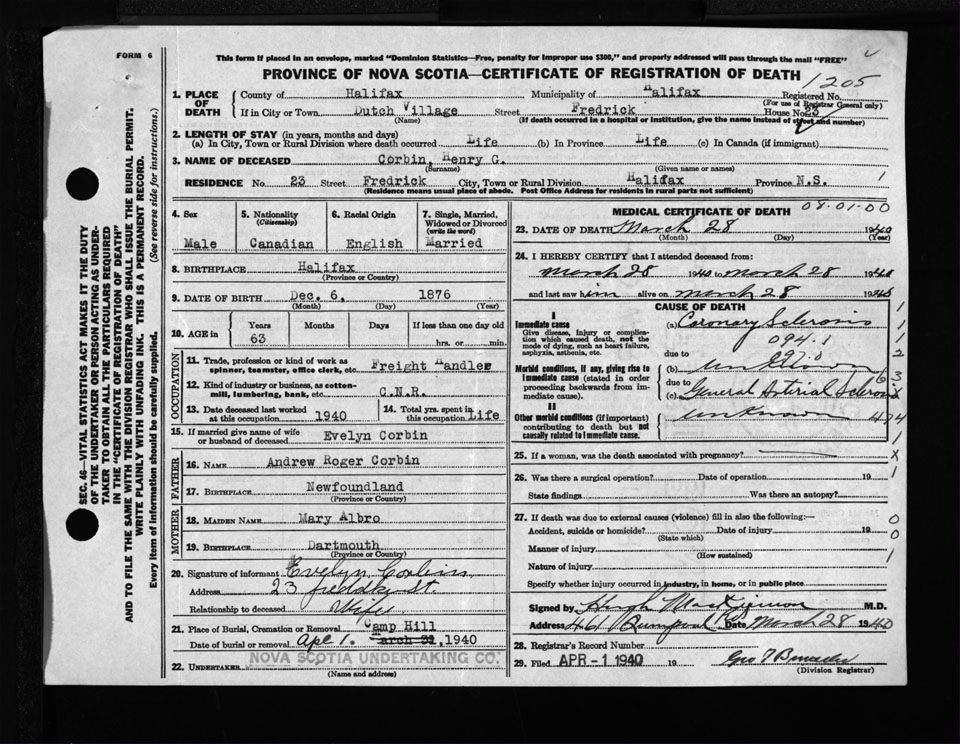 FORM 6
This form if placed in an envelope, marked "Dominion Statistics—Free, penalty for improper use $300," and properly addressed will pass through the mail "FREE"
PROVINCE OF NOVA SCOTIA—CERTIFICATE OF REGISTRATION OF DEATH
1205
1. PLACE OF DEATH
County of Halifax Municipality of Halifax Registered No.
(For use of Registrar General only)
If in City or Town Dutch Village Street Fredrick House No. 23
(Name) (If death occurred in a hospital or institution, give the name instead of street and number)
2. LENGTH OF STAY (in years, months and days)
(a) In City, Town or Rural Division where death occurred Life (b) In Province Life (c) In Canada (if immigrant)
3. NAME OF DECEASED Corbin, Henry G.
(Surname) (Given name or names)
RESIDENCE No. 23 Street Fredrick City, Town or Rural Division Halifax Province N.S. 1
(Residence means usual place of abode. Post Office Address for residents in rural parts not sufficient)
4. Sex
Male
5. Nationality
(Citizenship)
Canadian
6. Racial Origin
English
7. Single, Married, Widowed or Divorced
(write the word)
Married
8. BIRTHPLACE Halifax
(Province or Country)
9. DATE OF BIRTH Dec. 6, 1876
(Month) (Day) (Year)
10. AGE in Years Months Days If less than one day old
63 hrs. or min.
OCCUPATION
11. Trade, profession or kind of work as spinner, teamster, office clerk, etc. Freight Handler
12. Kind of industry or business, as cotton-mill, lumbering, bank, etc. C.N.R.
13. Date deceased last worked at this occupation 1940
14. Total yrs. spent in this occupation Life
15. If married give name of wife or husband of deceased Evelyn Corbin
FATHER
16. NAME Andrew Roger Corbin
17. BIRTHPLACE Newfoundland
(Province or Country)
MOTHER
18. MAIDEN NAME Mary Albro
19. BIRTHPLACE Dartmouth
(Province or Country)
20. Signature of informant Evelyn Corbin
Address 23 St.
Relationship to deceased Wife
21. Place of Burial, Cremation or Removal Camp Hill
Date of burial or removal Apl 1. March 31, 1940
22. UNDERTAKER NOVA SCOTIA UNDERTAKING CO.
(Name and address)
MEDICAL CERTIFICATE OF DEATH 08-01-00
23. DATE OF DEATH March 28 1940
(Month) (Day) (Year)
24. I HEREBY CERTIFY that I attended deceased from:
March 28 1940 to March 28 1940
and last saw him alive on March 28 1940
CAUSE OF DEATH
I
Immediate cause
Give disease, injury or complication which caused death, not the mode of dying, such as heart failure, asphyxia, asthenia, etc.
(a) Coronary Sclerosis
094.1
due to
Morbid conditions, if any, giving rise to immediate cause (stated in order proceeding backwards from immediate cause).
(b) Unknown
due to
(c) General Arterial Sclerosis
II
Other morbid conditions (if important) contributing to death but not causally related to immediate cause.
Unknown
25. If a woman, was the death associated with pregnancy?
26. Was there a surgical operation? Date of operation 19
State findings Was there an autopsy?
27. If death was due to external causes (violence) fill in also the following:—
Accident, suicide or homicide? Date of injury 19
(State which)
Manner of injury
(How sustained)
Nature of injury
Specify whether injury occurred in industry, in home, or in public place
Signed by Hugh MacKinnon M.D.
Address 461 Date March 28 1940
28. Registrar's Record Number
29. Filed APR - 1 1940 19
(Division Registrar)
SEC. 46—VITAL STATISTICS ACT MAKES IT THE DUTY
OF THE UNDERTAKER OR PERSON ACTING AS UNDER-
TAKER TO OBTAIN ALL THE PARTICULARS REQUIRED
IN THE "CERTIFICATE OF REGISTRATION OF DEATH"
AND TO FILE THE SAME WITH THE DIVISION REGISTRAR WHO SHALL ISSUE THE BURIAL PERMIT.
WRITE PLAINLY WITH UNFADING INK. THIS IS A PERMANENT RECORD.
Every item of information should be carefully supplied. (See reverse side for instructions.)